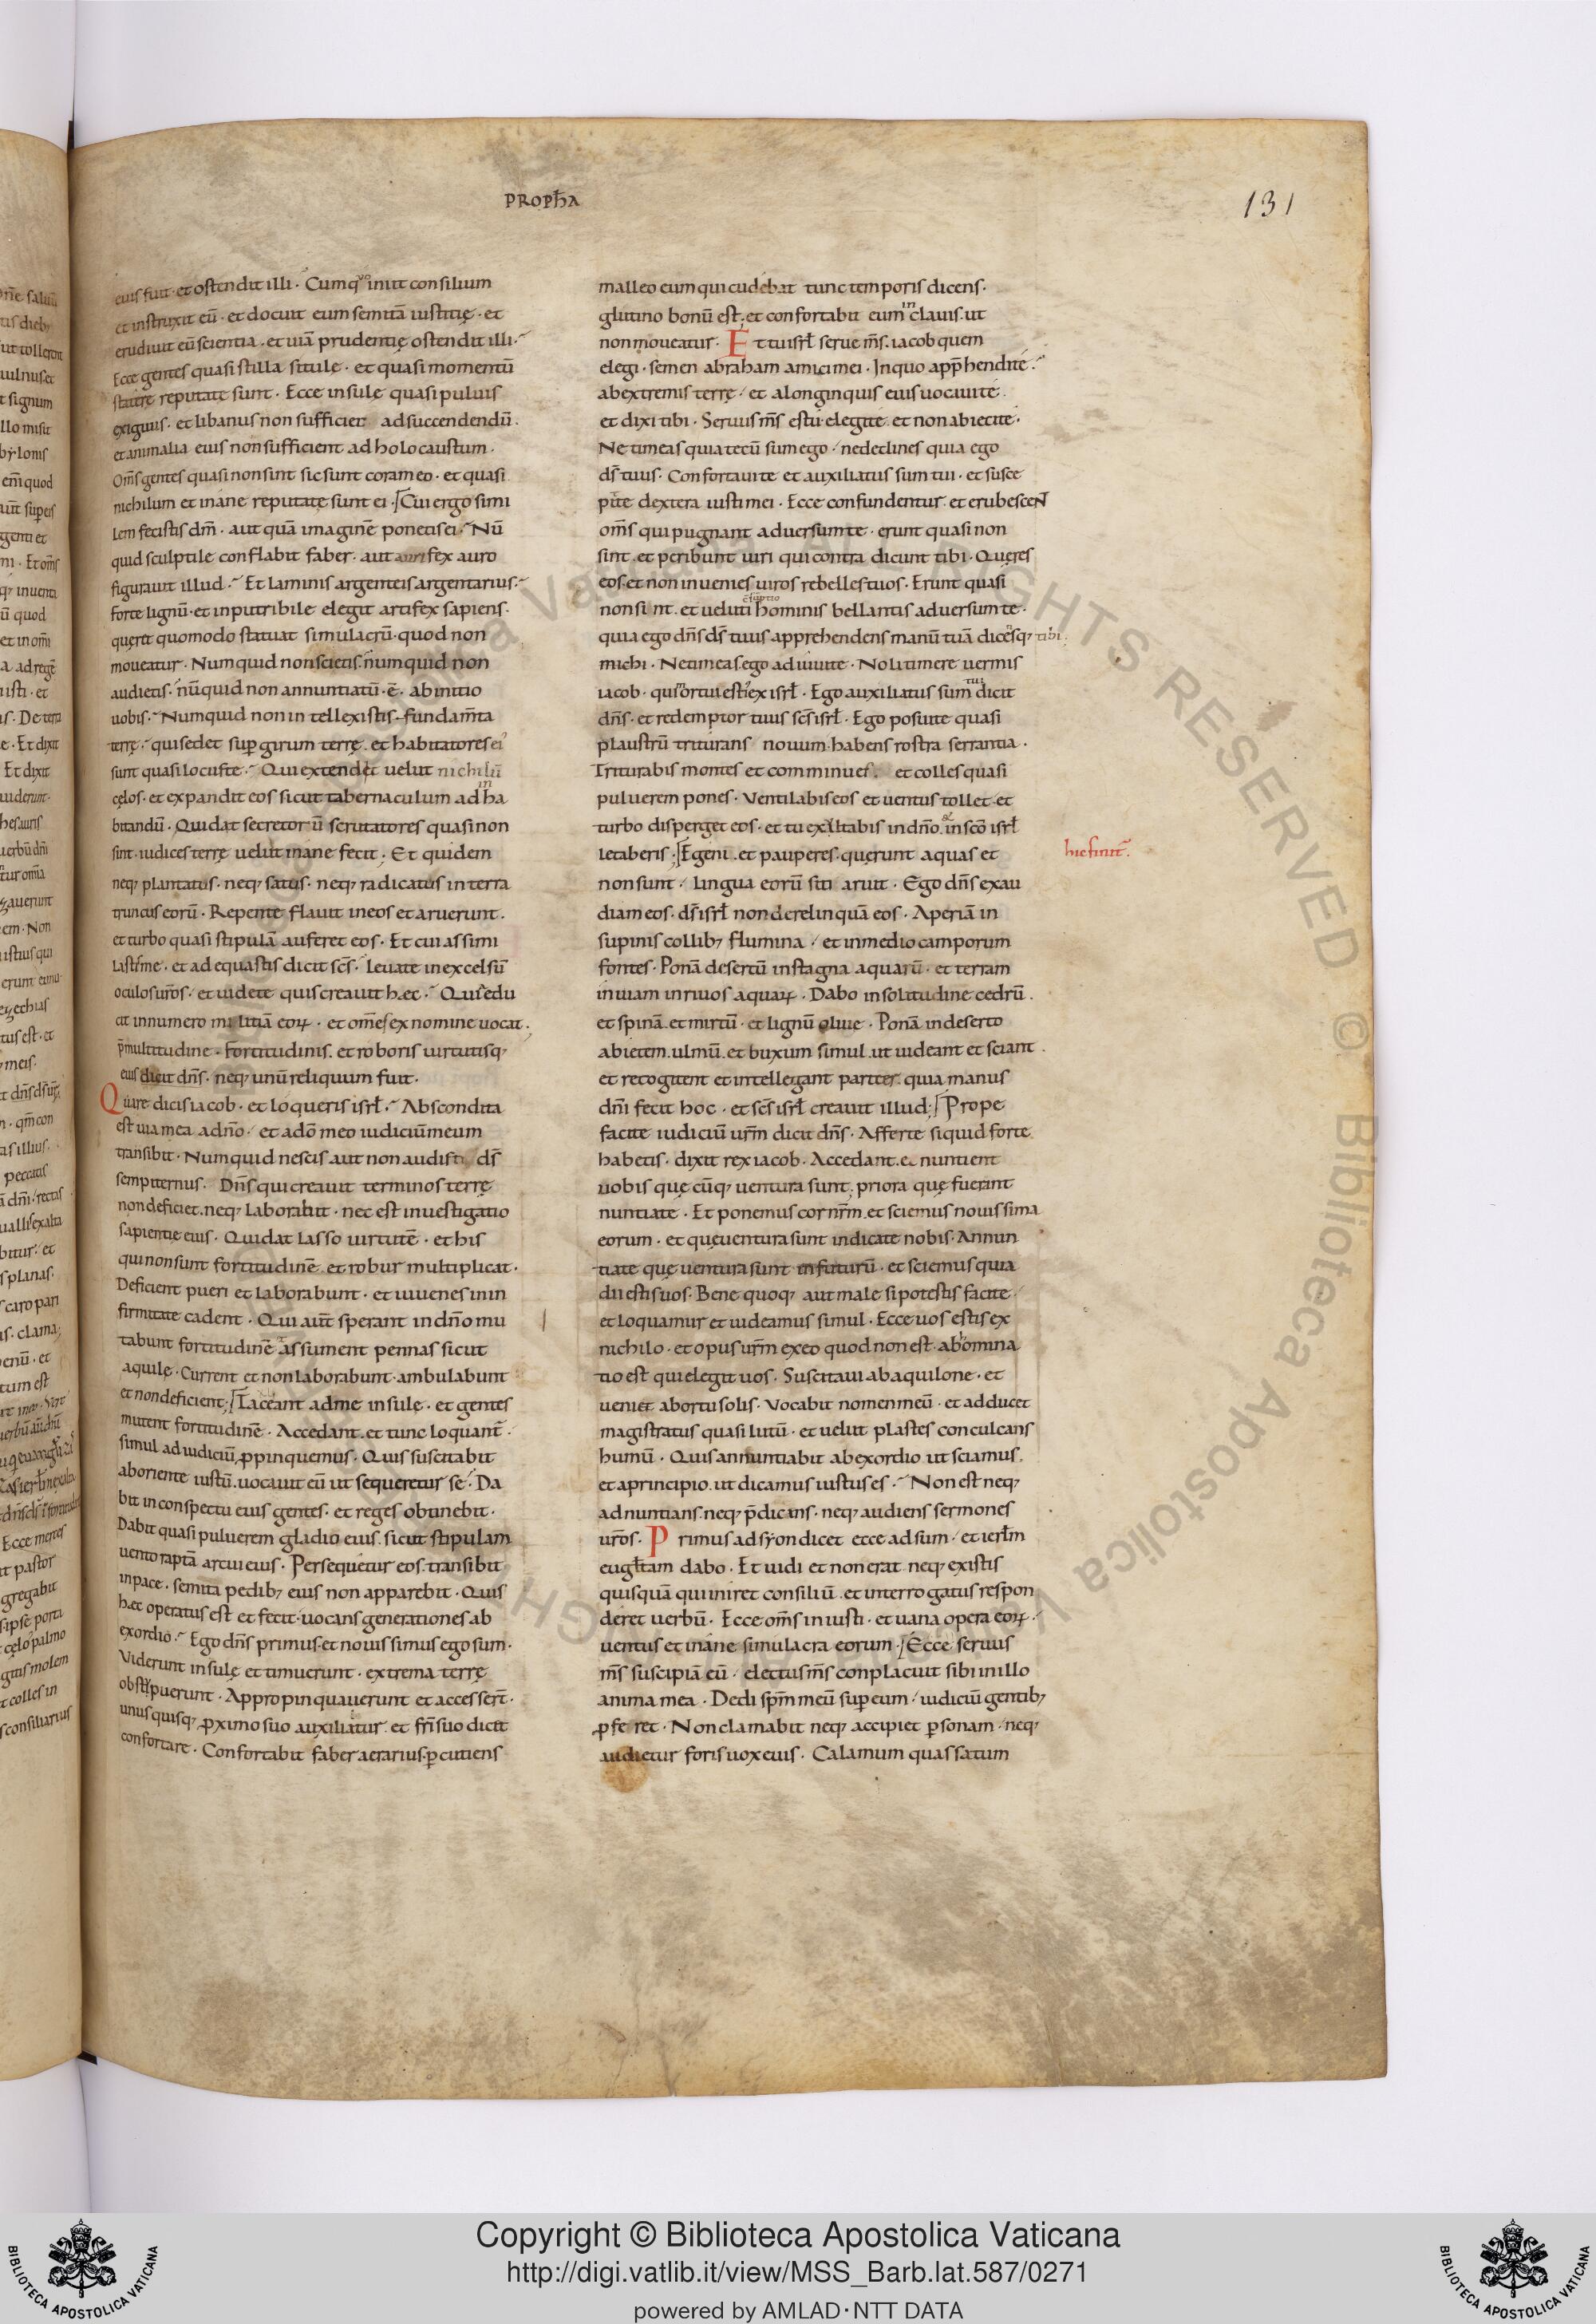 PROPħA
131
eius fuit · et ostendit illi · Cum quo iniit consilium
et instruxit eū · et docuit eum semitā iustitię · et
erudiuit eū scientia · et uiā prudentię ostendit illi ·
Ecce gentes quasi stilla situlę · et quasi momentū
staterę reputatę sunt · Ecce insulę quasi puluis
exiguus · et libanus non sufficiet ad succendendū ·
et animalia eius non sufficient ad holocaustum ·
Om̄s gentes quasi non sint sic sunt coram eo · et quasi
nichilum et inane reputatę sunt ei · Cui ergo simi
lem fecistis dm̄ · aut quā imaginē ponetis ei · Nū
quid sculptile conflabit faber · aut aurifex auro
figurauit illud · Et laminis argenteis argentarius ·
forte lignū · et inputribile elegit artifex sapiens ·
querit quomodo statuat simulacrū · quod non
moueatur · Numquid non scietis · numquid non
audietis · nūquid non annuntiatū · ē · ab initio
uobis · Numquid non intellexistis fundam̄ta
terrę · qui sedet sup girum terrę · et habitatores ei'
sunt quasi locustę · Qui extendit uelut nichilū
cęlos · et expandit eos sicut tabernaculum ad inha
bitandū · Qui dat secretorū scrutatores quasi non
sint · iudices terrę uelut inane fecit · Et quidem
neq; plantatus · neq; satus · neq; radicatus in terra
truncus eorū · Repente flauit in eos et aruerunt ·
et turbo quasi stipulā auferet eos · Et cui assimi
lastis me · et adequastis dicit scs̄ · leuate in excelsū
oculos uros̄ · et uidete quis creauit hęc · Qui edu
cit in numero militiā eoꝝ · et omēs ex nomine uocat ·
p̄ multitudine · fortitudinis · et roboris uirtutisq;
eius dicit dn̄s · neq; unū reliquum fuit ·
Quare dicis iacob · et loqueris isrł · Abscondita
est uia mea a dn̄o · et a dō meo iudiciū meum
transibit · Numquid nescis aut non audisti ds̄
sempiternus · Dn̄s qui creauit terminos terrę
non deficiet · neq; laborabit · nec est inuestigatio
sapientię eius · Qui dat lasso uirtutē · et his
qui non sunt fortitudinē et robur multiplicat ·
Deficient pueri et laborabunt · et iuuenes in in
firmitate cadent · Qui aūt sperant in dn̄o mu
tabunt fortitudinē assument pennas sicut
aquilę · Current et non laborabunt · ambulabunt
et non deficient ; Taceant ad me insulę · et gentes
mutent fortitudinē · Accedant · et tunc loquant̄ ·
simul ad iudiciū ꝓpinquemus · Quis suscitabit
ab oriente iustū · uocauit eū ut sequeretur se · Da
bit in conspectu eius gentes · et reges obtinebit ·
Dabit quasi puluerem gladio eius · sicut stipulam
uento raptā arcui eius · Persequetur eos · transibit
in pace · semita pedib; eius non apparebit · Quis
hęc operatus est et fecit · uocans generationes ab
exordio · Ego dn̄s primus · et nouissimus ego sum ·
Viderunt insulę et timuerunt · extrema terrę
obstipuerunt · Appropinquauerunt et accesser̄t ·
unusquisq; ꝓximo suo auxiliatur · et fr̄i suo dicit
confortare · Confortabit faber aerarius · ꝑcutiens
malleo eum qui cudebat tunc temporis dicens ·
glutino bonū est · et confortabit eum in clauis · ut
non moueatur · Et tu isrł serue ms̄ · iacob quem
elegi · semen abraham amici mei · In quo app̄hendi te ·
ab extremis terrę · et a longinquis eius uocaui te ·
et dixi tibi · Seruus ms̄ es tu · elegi te · et non abieci te ·
Ne timeas quia tecū sum ego · ne declines quia ego
ds̄ tuus · Confortaui te et auxiliatus sum tui · et susce
pit te dextera iusti mei · Ecce confundentur · et erubescent
om̄s qui pugnant aduersum te · erunt quasi non
sint · et peribunt uiri qui contra dicunt tibi · Queres
eos · et non inuenies uiros rebelles tuos · Erunt quasi
non sint · et ueluti consumptio hominis bellantis aduersum te ·
quia ego dn̄s ds̄ tuus apprehendens manū tuā dicensq; tibi
michi · Ne timeas · ego adiuui te · Noli timere uermis
iacob · qui mortui estis ex isrł · Ego auxiliatus sum tui dicit
dn̄s · et redemptor tuus scs̄ isrł · Ego posui te quasi
plaustrū triturans nouum · habens rostra serrantia ·
Triturabis montes et comminues · et colles quasi
puluerem pones · Ventilabis eos et uentus tollet · et
turbo disperget eos · et tu exaltabis in dn̄o · et in scō isrł
letaberis ; Egeni · et pauperes · querunt aquas et
hic finit̄ ·
non sunt · lingua eorū siti aruit · Ego dn̄s exau
diam eos · ds̄ isrł non derelinquā eos · Aperiā in
supinis collib; flumina · et in medio camporum
fontes · Ponā desertū in stagna aquarū · et terram
inuiam in riuos aquaꝝ · Dabo in solitudine cedrū ·
et spinā · et mirtū · et lignū oliuę · Ponā in deserto
abietem · ulmū · et buxum simul · ut uideant et sciant ·
et recogitent et intellegant pariter · quia manus
dn̄i fecit hoc · et scs̄ isrł creauit illud ; Prope
facite iudiciū urm̄ dicit dn̄s · Afferte siquid forte
habetis · dixit rex iacob · Accedant · et nuntient
uobis quęcūq; uentura sunt · priora quę fuerant
nuntiate · Et ponemus cor nrm̄ · et sciemus nouissima
eorum · et que uentura sunt indicate nobis · Annun
tiate quę uentura sunt in futurū · et sciemus quia
dii estis uos · Bene quoq; aut male si potestis facite ·
et loquamur et uideamus simul · Ecce uos estis ex
nichilo · et opus urm̄ ex eo quod non est · abomina
tio est qui elegit uos · Suscitaui ab aquilone · et
ueniet ab ortu solis · Vocabit nomen meū · et adducet
magistratus quasi lutū · et uelut plastes conculcans
humū · Quis annuntiabit ab exordio ut sciamus ·
et a principio · ut dicamus iustus es · Non est neq;
adnuntians · neq; p̄dicans · neq; audiens sermones
uros̄ · Primus ad syon dicet ecce adsum · et ierłm
eugłtam dabo · Et uidi et non erat neq; ex istis
quisquā qui iniret consiliū · et interrogatus respon
deret uerbū · Ecce om̄s iniusti · et uana opera eoꝝ ·
uentus et inane simulacra eorum · Ecce seruus
ms̄ suscipiā eū · electus ms̄ conplacuit sibi in illo
anima mea · Dedi spm̄ meū sup eum · iudiciū gentib;
ꝓferet · Non clamabit neq; accipiet ꝑsonam · neq;
audietur foris uox eius · Calamum quassatum
Copyright © Biblioteca Apostolica Vaticana
http://digi.vatlib.it/view/MSS_Barb.lat.587/0271
powered by AMLAD·NTT DATA
BIBLIOTECA APOSTOLICA VATICANA
BIBLIOTECA APOSTOLICA VATICANA